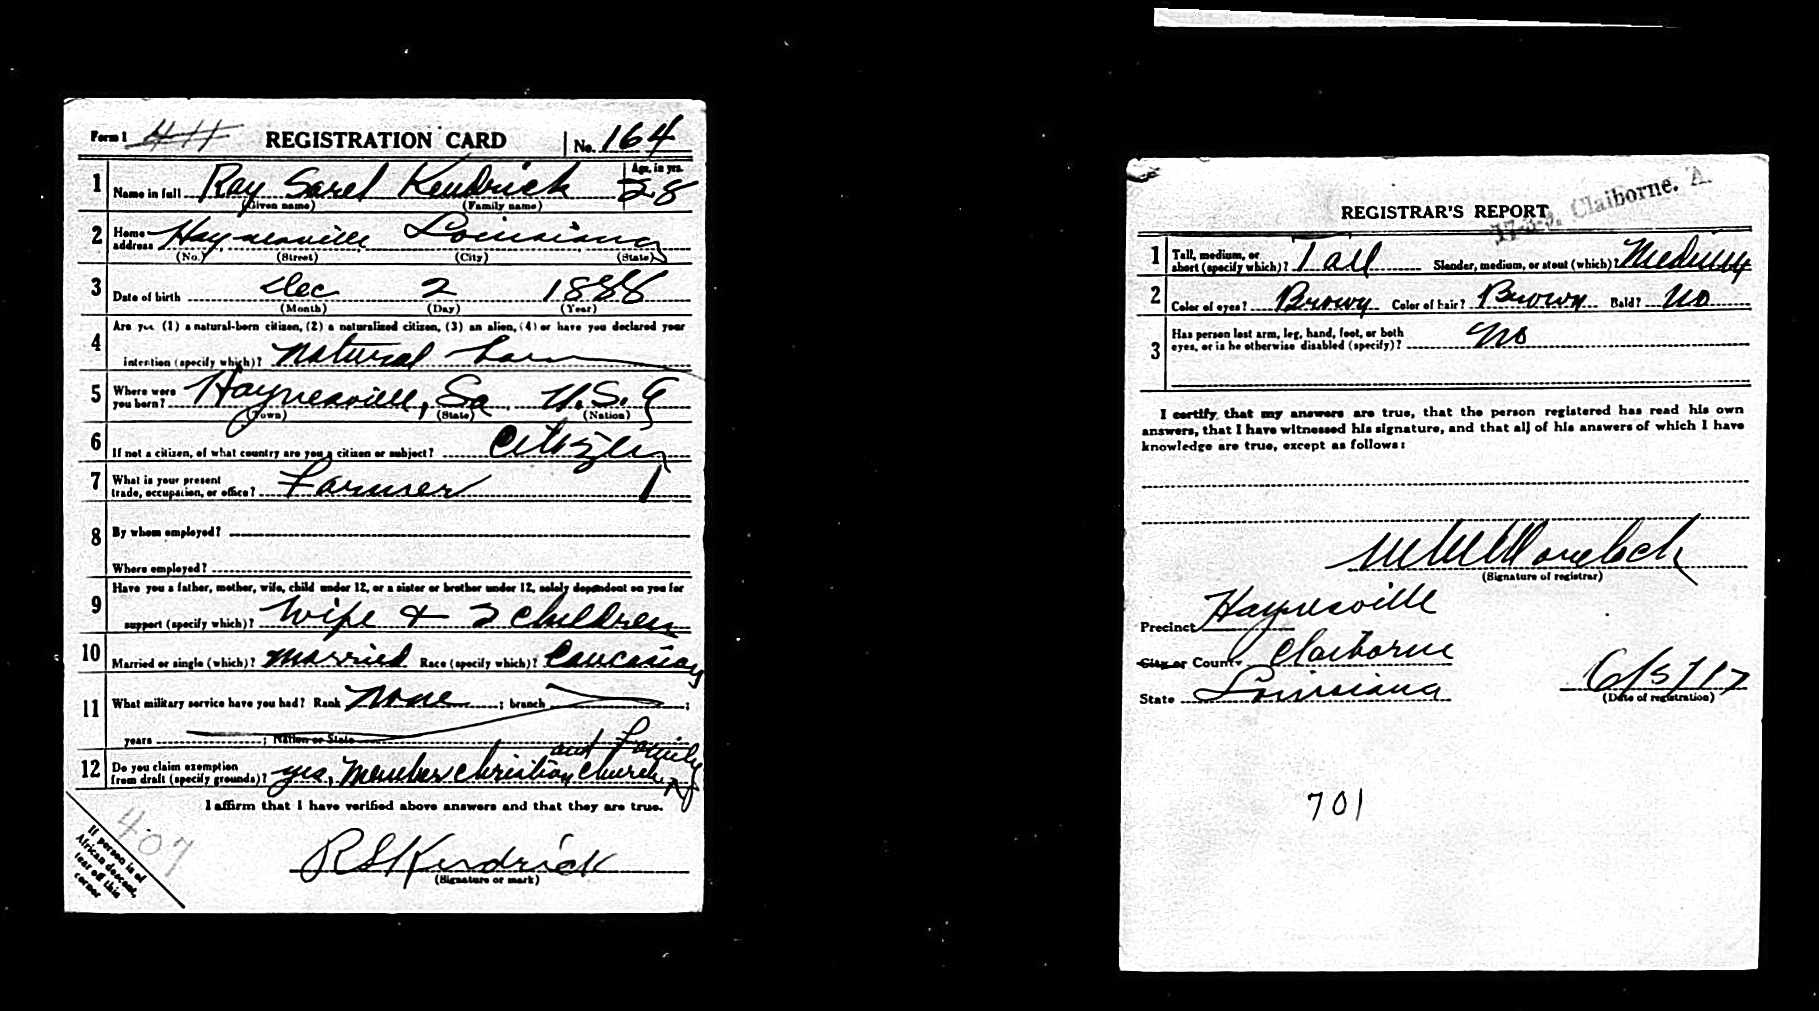 Form 1 411 REGISTRATION CARD No. 164
1 Name in full Ray Sorel Kendrick Age, in yrs. 28
(Given name) (Family name)
2 Home address Haynesville Louisiana
(No.) (Street) (City) (State)
3 Date of birth Dec 2 1888
(Month) (Day) (Year)
4 Are you (1) a natural-born citizen, (2) a naturalized citizen, (3) an alien, (4) or have you declared your
intention (specify which)? Natural born
5 Where were you born? Haynesville, La U.S.A
(Town) (State) (Nation)
6 If not a citizen, of what country are you a citizen or subject? Citizen
7 What is your present trade, occupation, or office? Farmer 1
8 By whom employed?
Where employed?
9 Have you a father, mother, wife, child under 12, or a sister or brother under 12, solely dependent on you for
support (specify which)? Wife & 2 children
10 Married or single (which)? Married Race (specify which)? Caucasian
11 What military service have you had? Rank None ; branch ;
years ; Nation or State
and Family
12 Do you claim exemption from draft (specify grounds)? yes, Member Christian Church
I affirm that I have verified above answers and that they are true.
R S Kendrick
(Signature or mark)
407
If person is of African descent, tear off this corner
REGISTRAR'S REPORT
Claiborne. A.
1 Tall, medium, or short (specify which)? Tall Slender, medium, or stout (which)? Medium
2 Color of eyes? Brown Color of hair? Brown Bald? No
3 Has person lost arm, leg, hand, foot, or both eyes, or is he otherwise disabled (specify)? No
I certify that my answers are true, that the person registered has read his own
answers, that I have witnessed his signature, and that all of his answers of which I have
knowledge are true, except as follows:
(Signature of registrar)
Precinct Haynesville
City or County Claiborne
State Louisiana 6/5/17
(Date of registration)
701